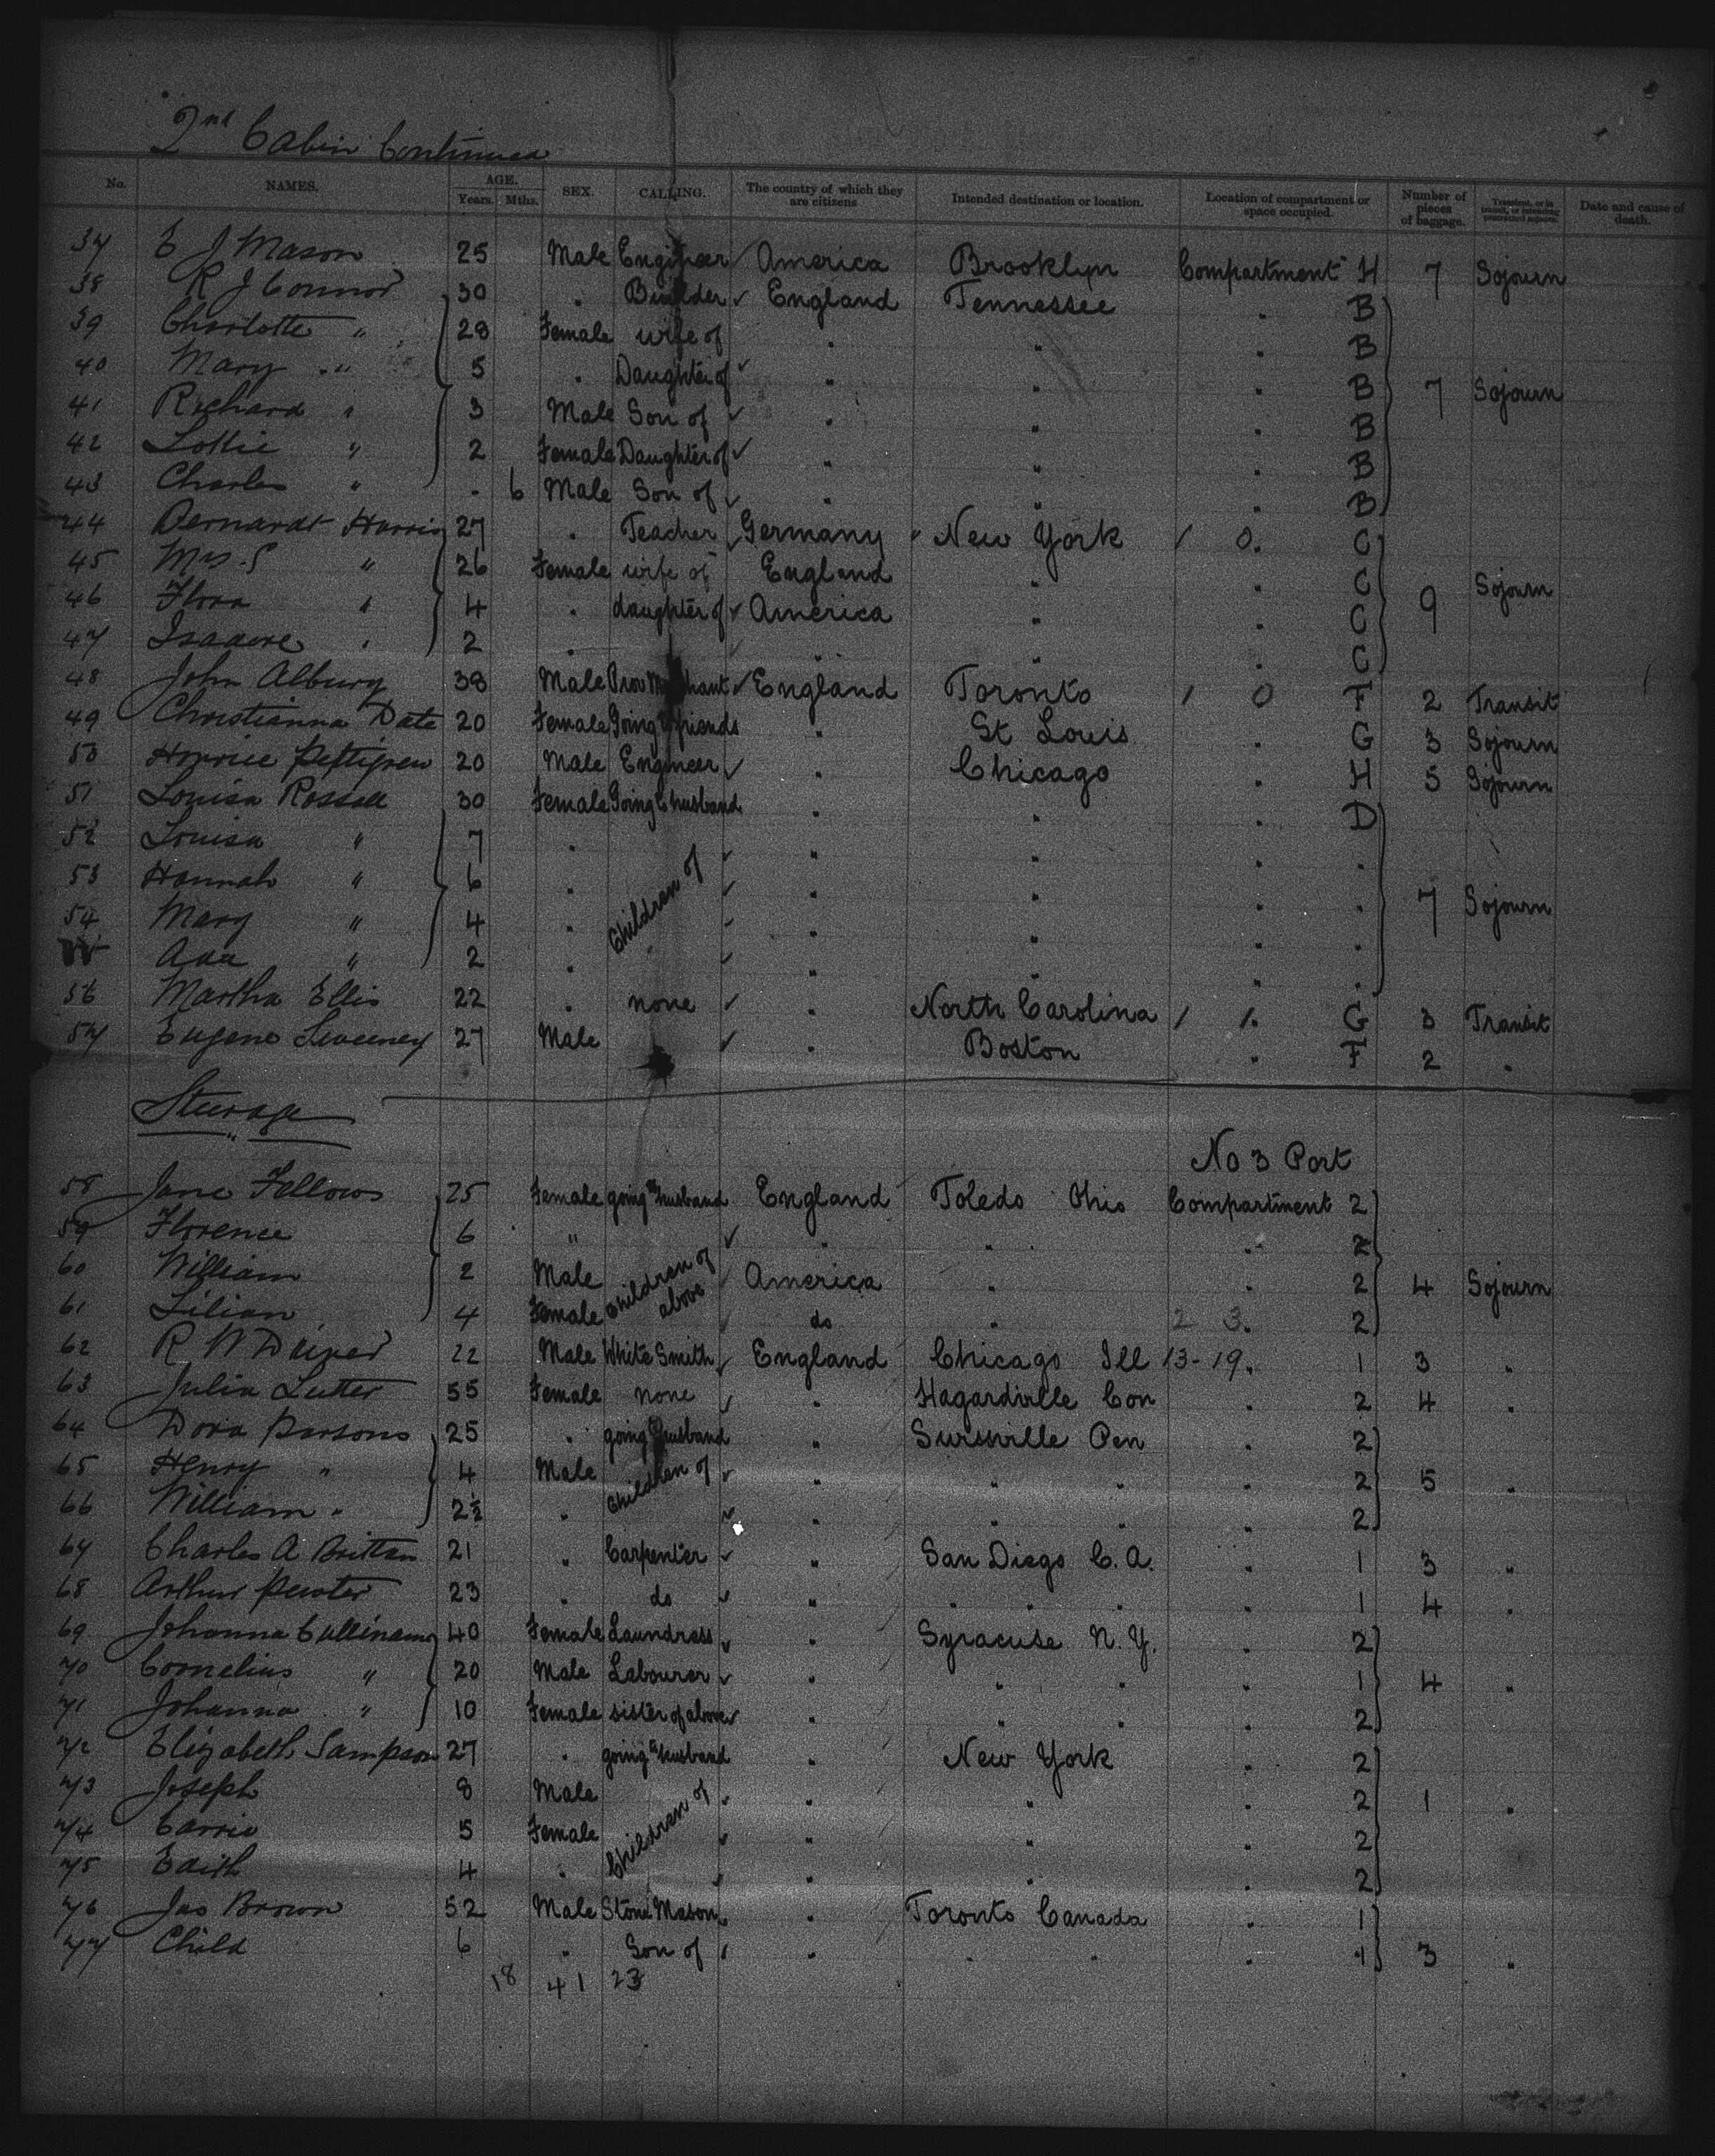 2nd Cabin Continued
No. NAMES. AGE. Years. Mths. SEX. CALLING. The country of which they are citizens Intended destination or location. Location of compartment or space occupied. Number of pieces of baggage. Transient, or in transit, or intending protracted sojourn. Date and cause of death.
37 E J Mason 25 Male Engineer America Brooklyn Compartment H 7 Sojourn
38 R J Connor 30 " Builder England Tennessee " B
39 Charlotte " 28 Female wife of " " " B
40 Mary " 5 " Daughter of " " " B 7 Sojourn
41 Richard " 3 Male Son of " " " B
42 Lottie " 2 Female Daughter of " " " B
43 Charles " " 6 Male Son of " " " B
44 Bernardt Harris 27 " Teacher Germany New York 1 0. C
45 Mrs S " 26 Female wife of England " " C Sojourn
46 Flora " 4 " daughter of America " " C 9
47 Isadore " 2 " " " " C
48 John Albury 38 Male Prov Merchant England Toronto 1 0 F 2 Transit
49 Christianna Date 20 Female Going to friends " St Louis " G 3 Sojourn
50 Pettigrew 20 Male Engineer " Chicago " H 5 Sojourn
51 Louisa Rossall 30 Female Going to husband " " " D
52 Louisa " 7 " Children of " " " "
53 Hannah " 6 " " " " " 7 Sojourn
54 Mary " 4 " " " " "
Ada " 2 " " " " "
56 Martha Ellis 22 " none " North Carolina 1 1. G 3 Transit
57 Eugene Sweeney 27 Male " Boston " F 2 "
Steerage
No 3 Port
58 Jane Fellows 25 Female going to husband England Toledo Ohio Compartment 2
59 Florence 6 " " " " 2
60 William 2 Male Children of above America " " 2 4 Sojourn
61 Lilian 4 Female do " 2 3. 2
62 R W 22 Male White Smith England Chicago Ill 13-19. 1 3 "
63 Julia Lutter 55 Female none " Hagardville Con " 2 4 "
64 Dora Parsons 25 " going to husband " Pen " 2
65 Henry " 4 Male Children of " " " " 2 5 "
66 William " 2½ " " " " " 2
67 Charles A Brittan 21 " Carpenter " San Diego C.A. " 1 3 "
68 Arthur Pewter 23 " do " " " " " 1 4 "
69 Johanna Cullinane 40 Female Laundress " Syracuse N.Y. " 2
70 Cornelius " 20 Male Labourer " " " " 1 4 "
71 Johanna " 10 Female sister of above " " " " 2
72 Elizabeth Sampson 27 " going to husband " New York " 2
73 Joseph 8 Male Children of " " " 2 1 "
74 Carrie 5 Female " " " 2
75 Edith 4 " " " " 2
76 Jas Brown 52 Male Stone Mason " Toronto Canada " 1
77 Child 6 " Son of " " " " 1 3 "
18 41 23